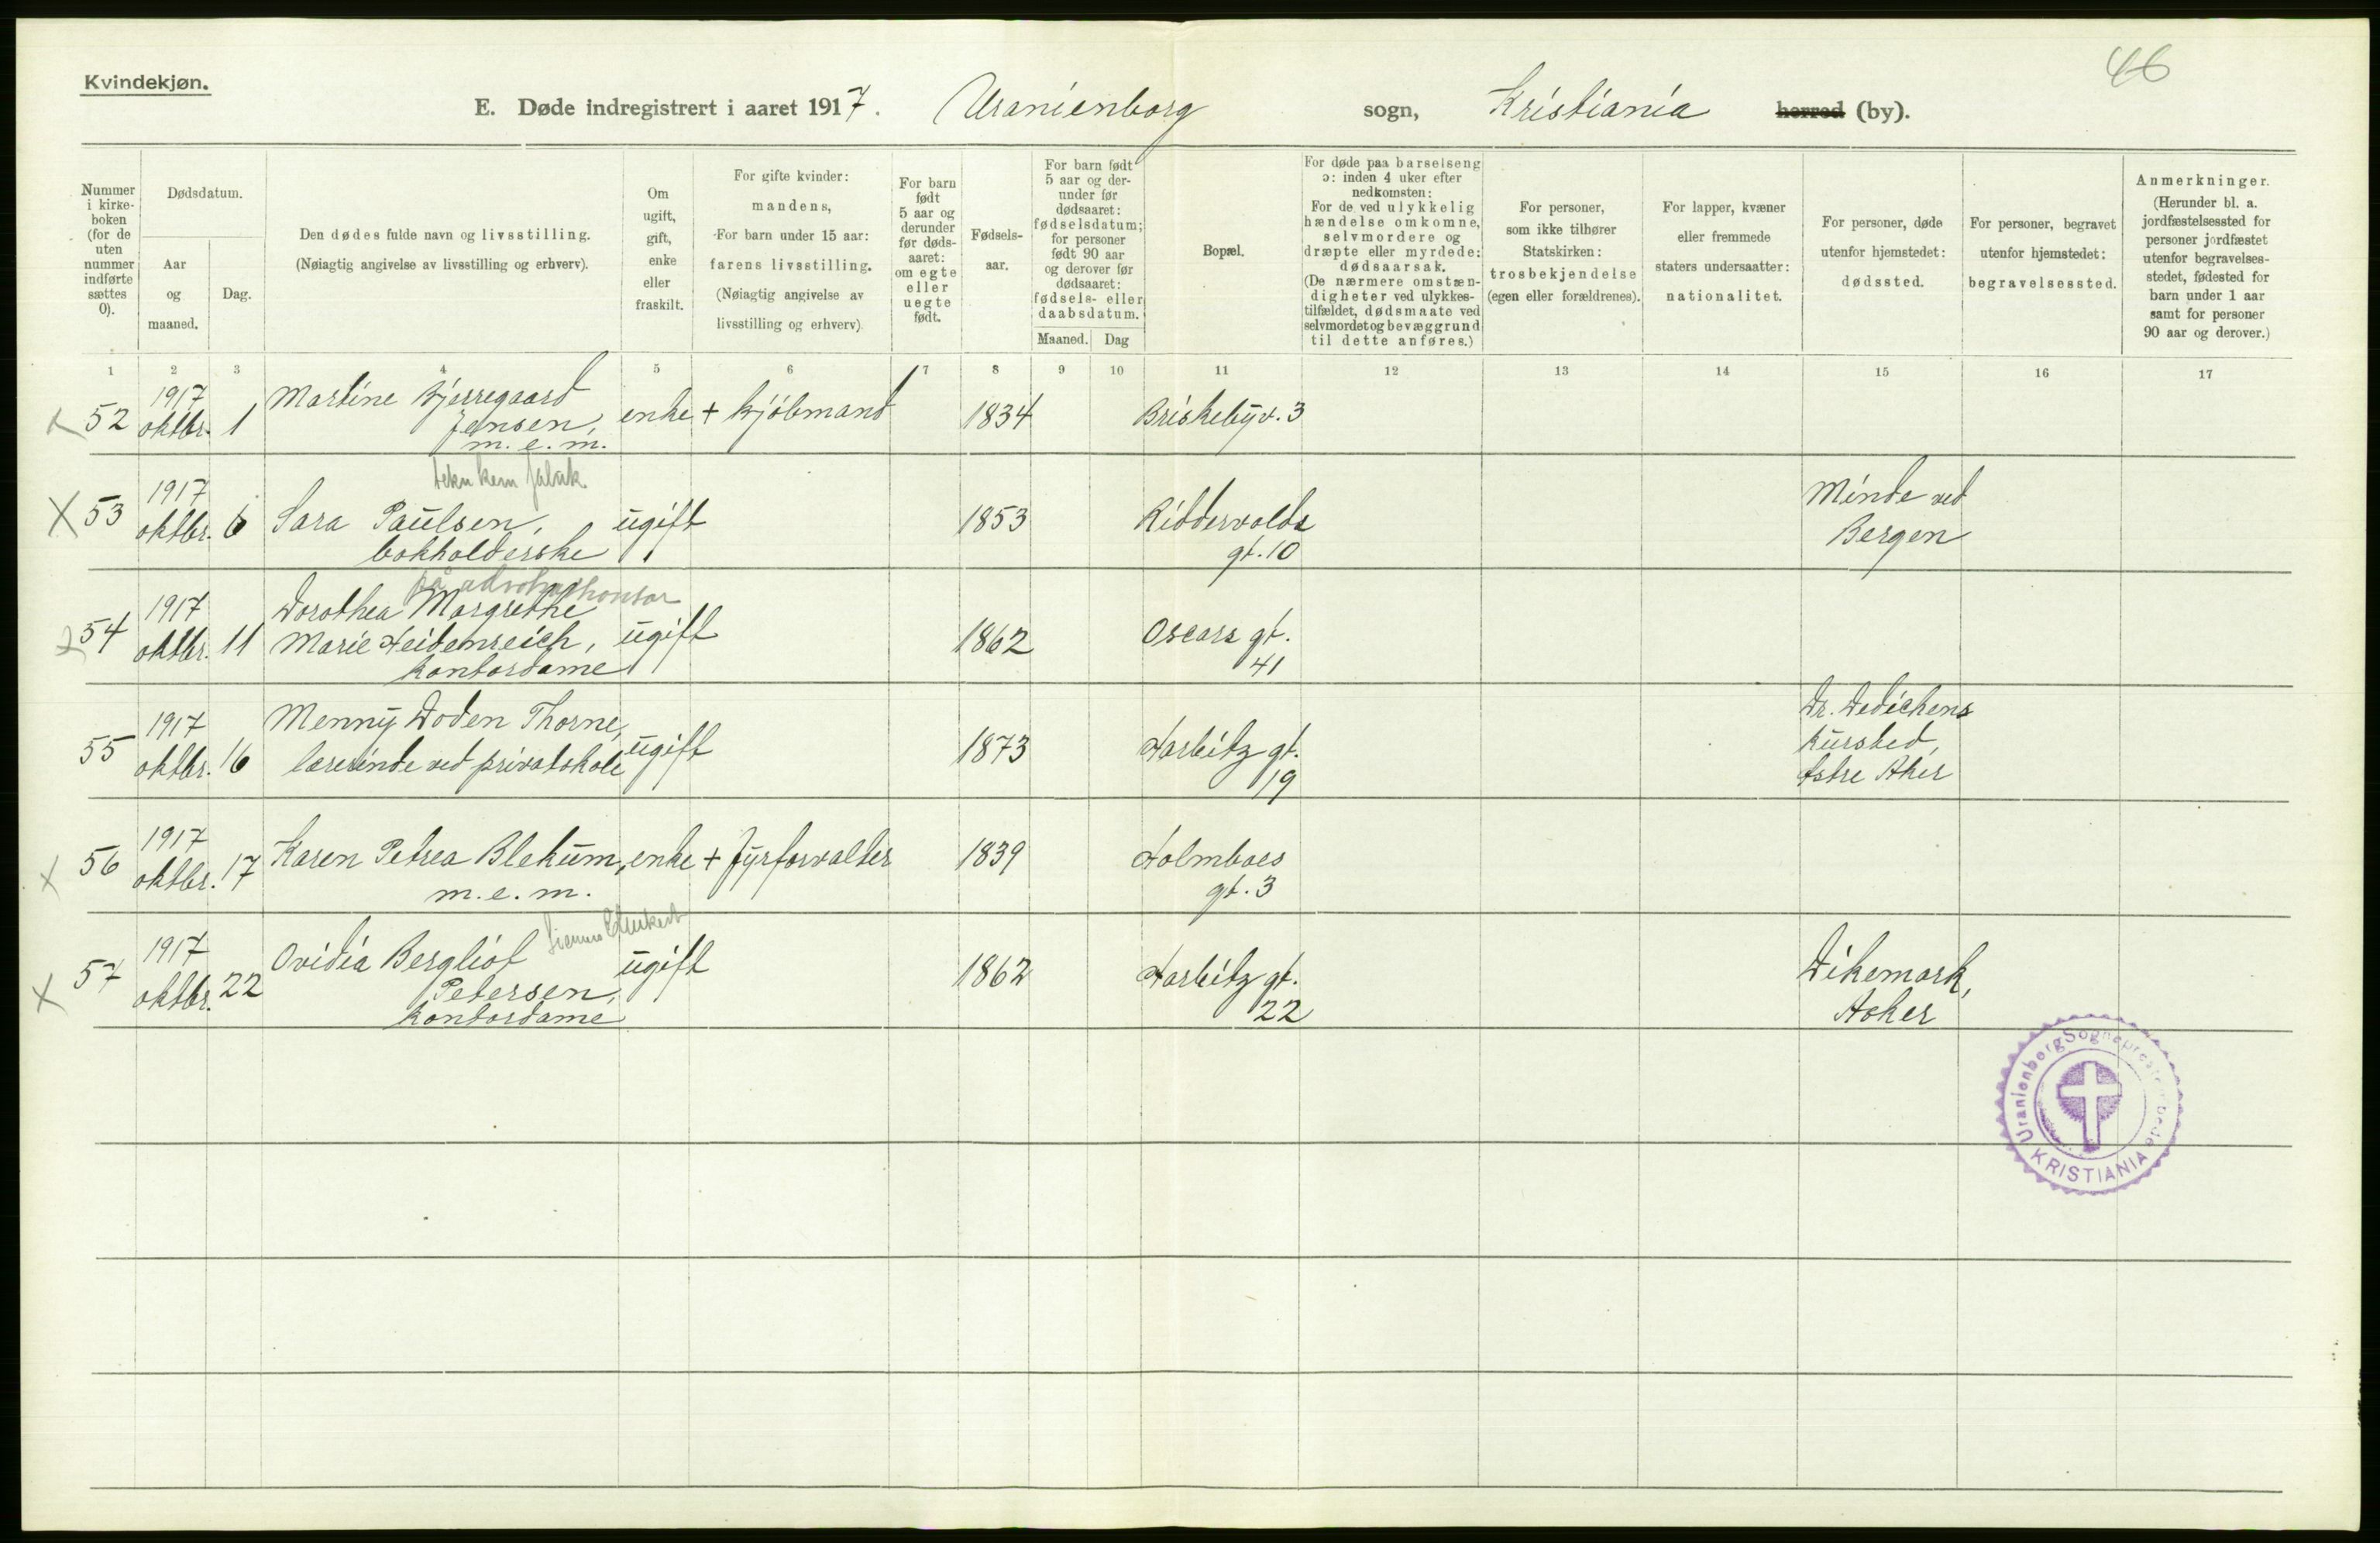 46
Kvindekjøn.
E. Døde indregistrert i aaret 1917. Uranienborg sogn, Kristiania herred (by).
Nummer i kirkeboken (for de uten nummer indførte sættes 0).
Dødsdatum.
Aar og maaned.
Dag.
Den dødes fulde navn og livsstilling.
(Nøiagtig angivelse av livsstilling og erhverv).
Om ugift, gift, enke eller fraskilt.
For gifte kvinder: mandens,
For barn under 15 aar: farens livsstilling.
(Nøiagtig angivelse av livsstilling og erhverv)
For barn født 5 aar og derunder før dødsaaret: om egte eller uegte født.
Fødselsaar.
For barn født 5 aar og derunder før dødsaaret: fødselsdatum; for personer født 90 aar og derover før dødsaaret: fødsels- eller daabsdatum.
Maaned. Dag
Bopæl.
For døde paa barselseng ɔ: inden 4 uker efter nedkomsten:
For de ved ulykkelig hændelse omkomne, selvmordere og dræpte eller myrdede: dødsaarsak.
(De nærmere omstændigheter ved ulykkestilfældet, dødsmaate ved selvmordet og bevæggrund til dette anføres.)
For personer, som ikke tilhører Statskirken: trosbekjendelse (egen eller forældrenes).
For lapper, kvæner eller fremmede staters undersaatter: nationalitet.
For personer, døde utenfor hjemstedet: dødssted.
For personer, begravet utenfor hjemstedet: begravelsessted.
Anmerkninger.
(Herunder bl. a. jordfæstelsessted for personer jordfæstet utenfor begravelsesstedet, fødested for barn under 1 aar samt for personer 90 aar og derover.)
1 2 3 4 5 6 7 8 9 10 11 12 13 14 15 16 17
52 1917 oktbr. 1 Martine Bjerregaard Jensen, m.e.m. enke + kjöbmand 1834 Briskebyv. 3
53 1917 oktbr. 6 Sara Paulsen, bokholderske ugift 1853 Riddervolds gt. 10 Minde ved Bergen
på advokatkontor
54 1917 oktbr. 11 Dorothea Margrethe Marie Heidenreich, kontordame ugift 1862 Oscars gt. 41
55 1917 oktbr. 16 Menny Doden Thorne, lærerinde ved privatskole ugift 1873 Harbitz gt. 19 Dr. Dedichens kursted, Østre Aker
56 1917 oktbr. 17 Karen Petrea Blekum, m.e.m. enke + Fyrforvalter 1839 Holmboes gt. 3
57 1917 oktbr. 22 Ovidia Bergliot Petersen, kontordame ugift 1862 Harbitz gt. 22 Dikemark, Asker
Uranienborg Sogneprestembede
KRISTIANIA